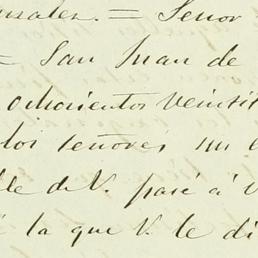 nzalez. = Señor
= San Juan de
ochocientos veinti
los señores un
ble de V. pasé á V
la que V. le di